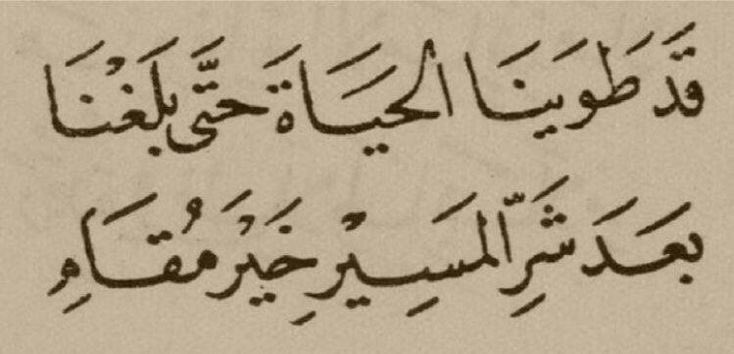 قَد طَوَينَا الحَيَاةَ حتَّى بلَغْنَا
بعَدَ شَرِّ المَسِيْرِ خَيْرَ مُقَامِ